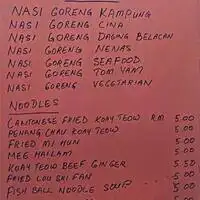 NASI GORENG KAMPUNG
NASI GORENG CINA
NASI GORENG DAGING BELACAN
NASI GORENG NENAS
NASI GORENG SEAFOOD
NASI GORENG TOM YAM
NASI GORENG VEGETARIAN
NOODLES
CANTONESE FRIED KOAY TEOW RM 5.00
PENANG CHAR KOAY TEOW 5.00
FRIED MI HUN 5.00
MEE HAILAM 5.00
KOAY TEOW BEEF GINGER 5.50
FRIED LOU SHI FAN 5.00
FISH BALL NOODLE SOUP .. .. 5.00
5.00